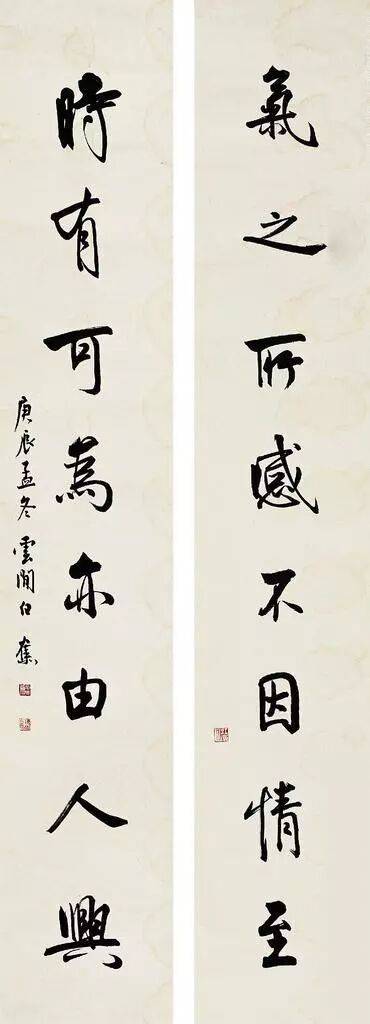 氣之所感不因情至
時有可為亦由人興
庚辰孟冬 雲間白蕉